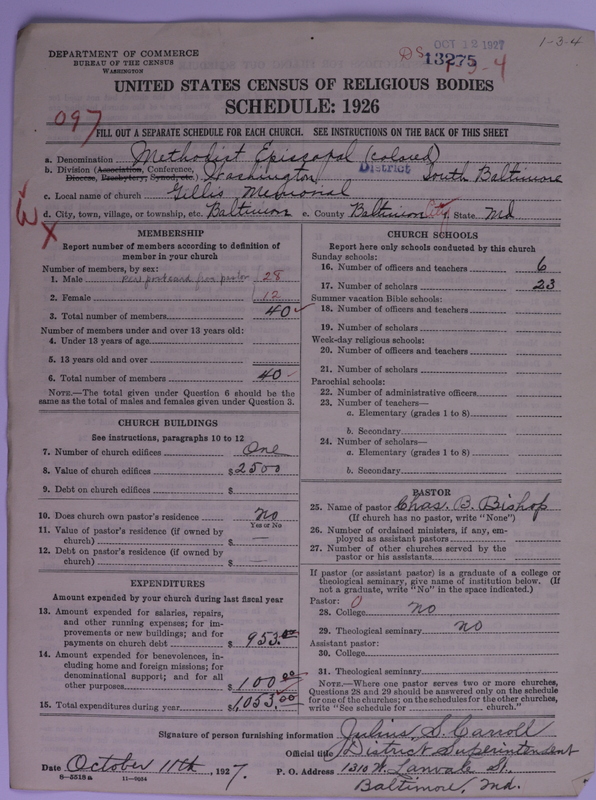 DEPARTMENT OF COMMERCE
BUREAU OF THE CENSUS
WASHINGTON
OCT 12 1927
DS 13275
1-3-4
1-3-4
UNITED STATES CENSUS OF RELIGIOUS BODIES
SCHEDULE: 1926
097
FILL OUT A SEPARATE SCHEDULE FOR EACH CHURCH. SEE INSTRUCTIONS ON THE BACK OF THIS SHEET
a. Denomination Methodist Episcopal (colored)
b. Division (Association, Conference, Diocese, Presbytery, Synod, etc.) Washington District South Baltimore
c. Local name of church Gillis Memorial
d. City, town, village, or township, etc. Baltimore e. County Baltimore City State Md
MEMBERSHIP
Report number of members according to definition of
member in your church
Number of members, by sex:
1. Male per postcard from pastor 28
2. Female 12
3. Total number of members 40
Number of members under and over 13 years old:
4. Under 13 years of age
5. 13 years old and over
6. Total number of members 40
NOTE.—The total given under Question 6 should be
the same as the total of males and females given under Question 3.
CHURCH BUILDINGS
See instructions, paragraphs 10 to 12
7. Number of church edifices One
8. Value of church edifices $2500
9. Debt on church edifices $
10. Does church own pastor's residence No
Yes or No
11. Value of pastor's residence (if owned by
church) $ —
12. Debt on pastor's residence (if owned by
church) $ —
EXPENDITURES
Amount expended by your church during last fiscal year
13. Amount expended for salaries, repairs,
and other running expenses; for im-
provements or new buildings; and for
payments on church debt $ 953.00
14. Amount expended for benevolences, in-
cluding home and foreign missions; for
denominational support; and for all
other purposes $ 100.00
15. Total expenditures during year $1,053.00
CHURCH SCHOOLS
Report here only schools conducted by this church
Sunday schools:
16. Number of officers and teachers 6
17. Number of scholars 23
Summer vacation Bible schools:
18. Number of officers and teachers
19. Number of scholars
Week-day religious schools:
20. Number of officers and teachers
21. Number of scholars
Parochial schools:
22. Number of administrative officers
23. Number of teachers—
a. Elementary (grades 1 to 8)
b. Secondary
24. Number of scholars—
a. Elementary (grades 1 to 8)
b. Secondary
PASTOR
25. Name of pastor Chas. B. Bishop
(If church has no pastor, write "None")
26. Number of ordained ministers, if any, em-
ployed as assistant pastors
27. Number of other churches served by the
pastor or his assistants
If pastor (or assistant pastor) is a graduate of a college or
theological seminary, give name of institution below. (If
not a graduate, write "No" in the space indicated.)
Pastor: 0
28. College no
29. Theological seminary no
Assistant pastor:
30. College
31. Theological seminary
NOTE.—Where one pastor serves two or more churches,
Questions 28 and 29 should be answered only on the schedule
for one of the churches; on the schedules for the other churches,
write "See schedule for church."
Signature of person furnishing information Julius S. Carroll
Official title District Superintendent
Date October 11th, 1927. P. O. Address 1310 W. Lanvale St.,
8—5518a 11—9054 Baltimore, Md.